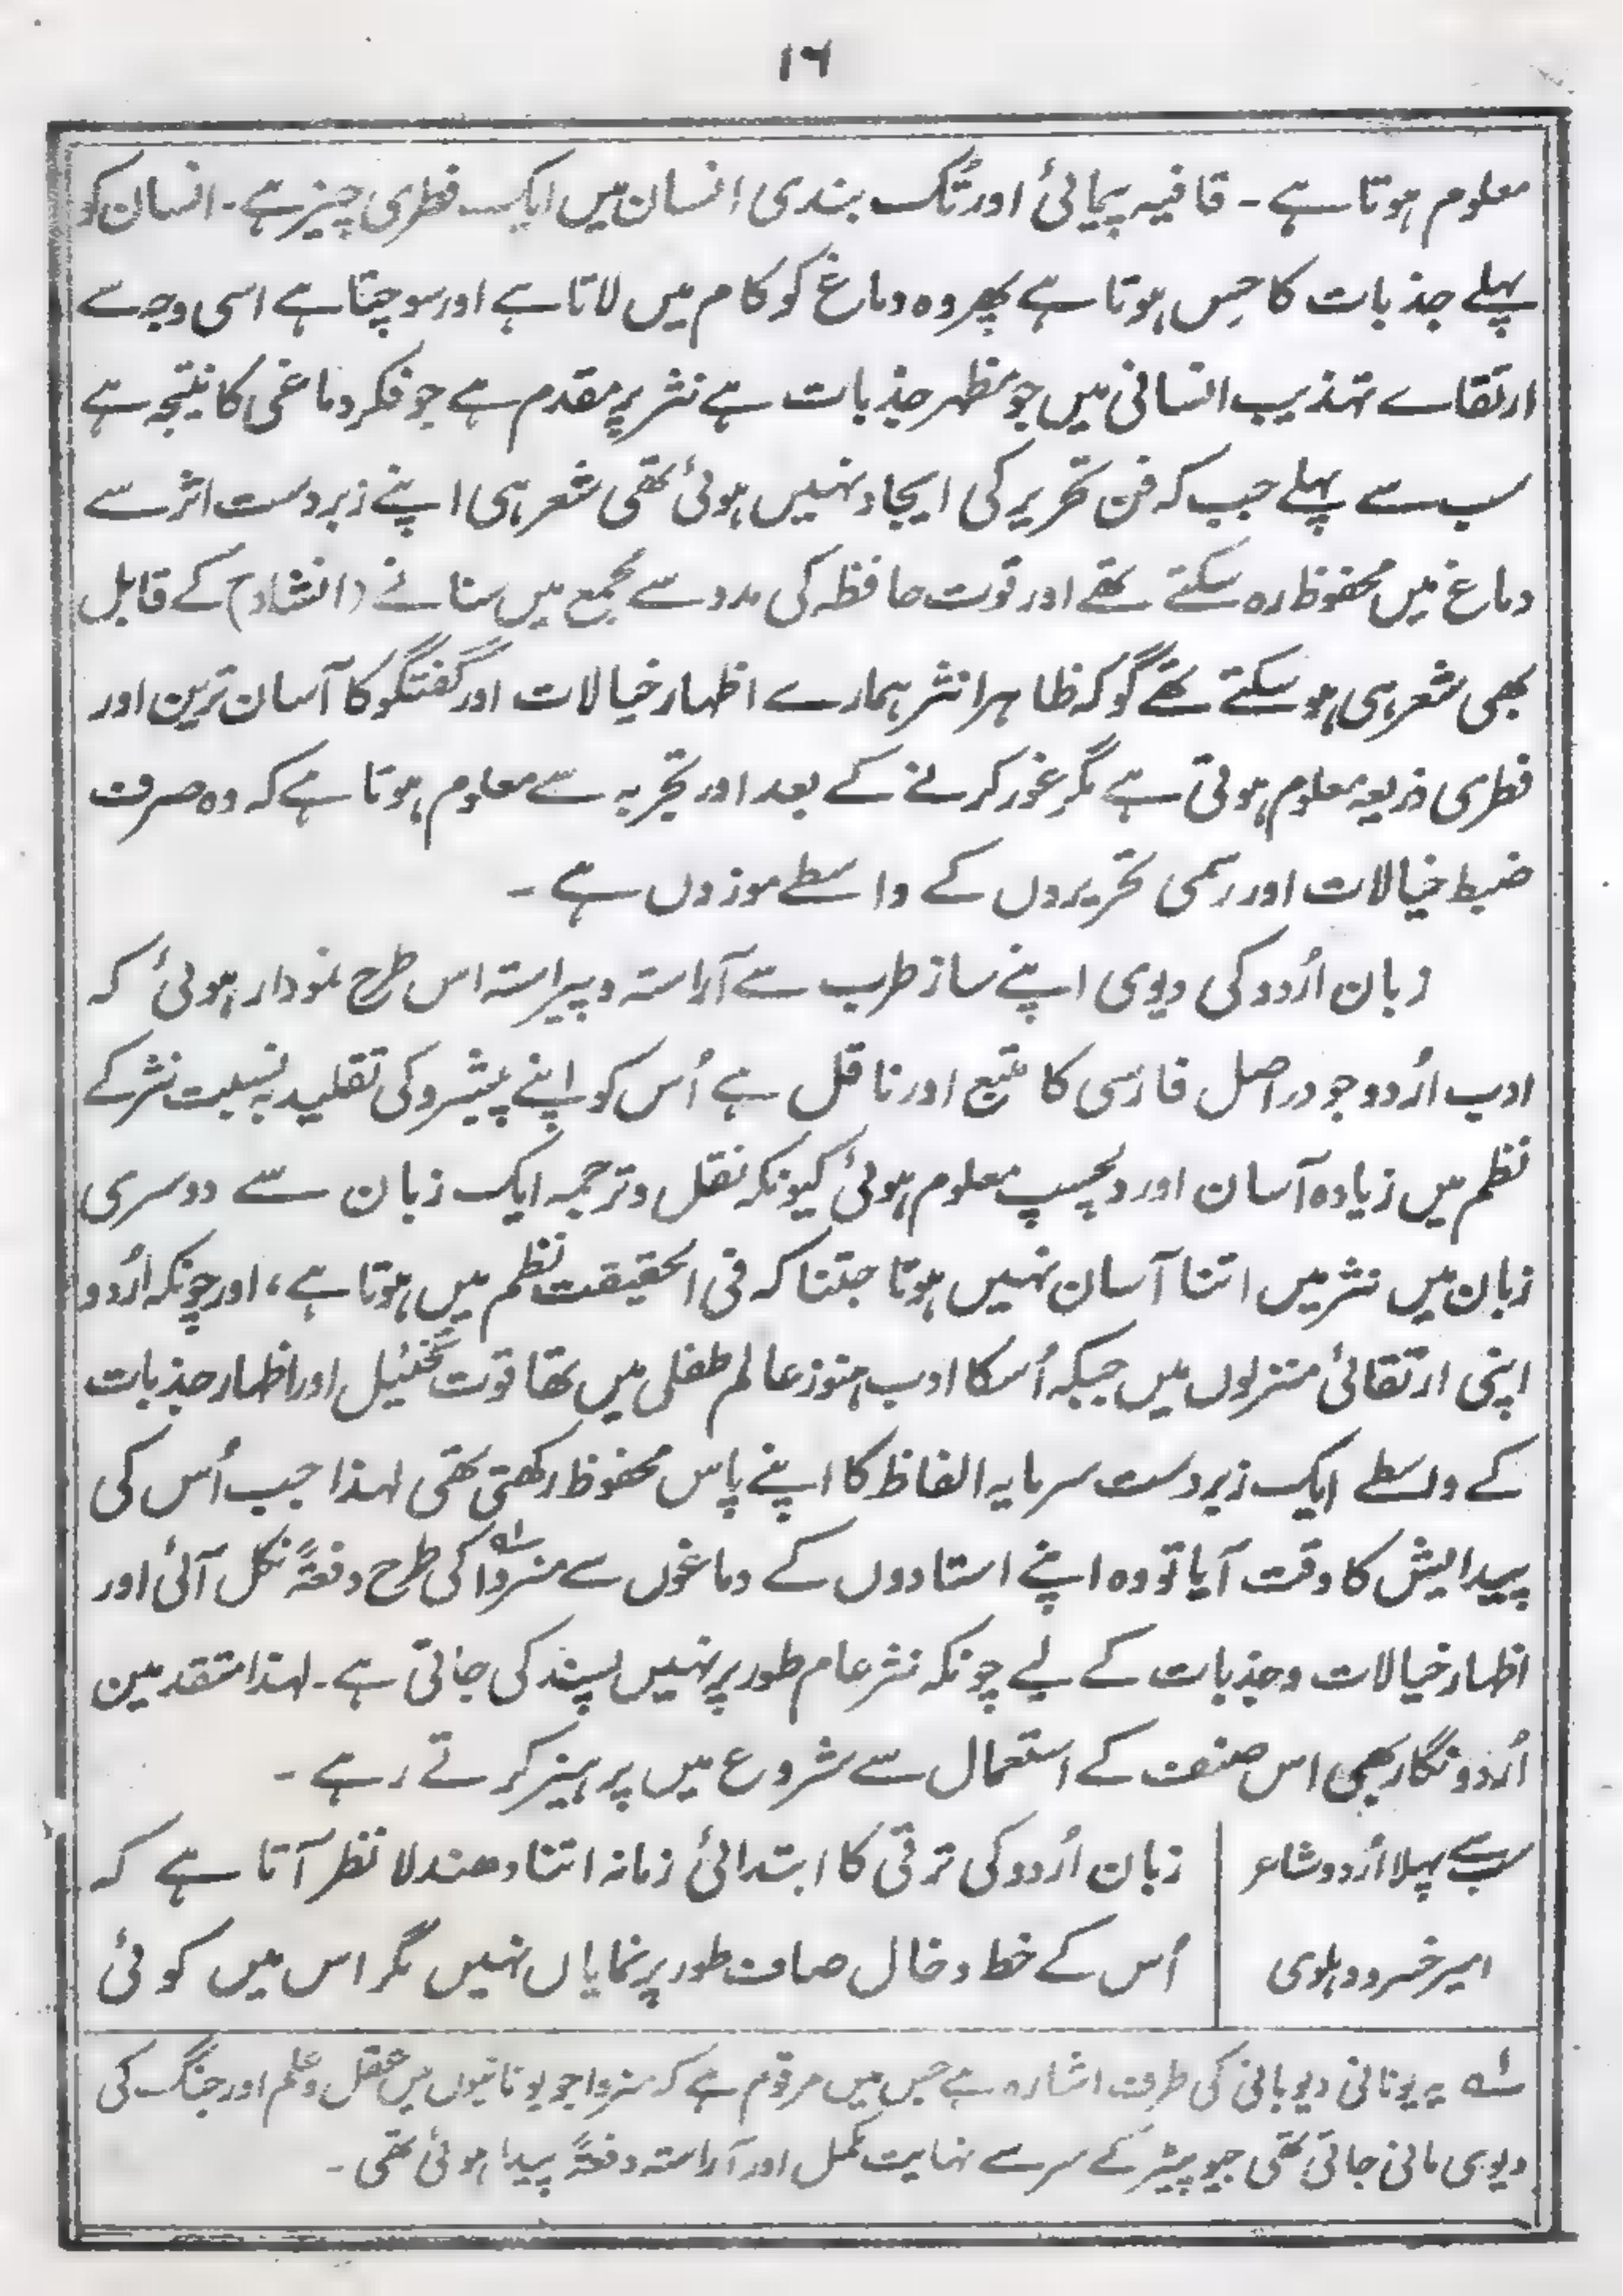 ۱۶
معلوم ہوتا ہے ۔ قافیہ پیمائی اور تُک بندی انسان میں ایک فطری چیز ہے ۔ انسان کو
پہلے جذبات کا حِس ہوتا ہے پھر وہ دماغ کو کام میں لاتا ہے اور سوچتا ہے اسی وجہ سے
ارتقاے تہذیب انسانی میں جو مظہر جذبات ہے نثر پر مقدم ہے جو فکر دماغی کا نیتجہ ہے
سب سے پہلے جب کہ فن تحریر کی ایجاد نہیں ہوئی تھی شعر ہی اپنے زبردست اثر سے
دماغ میں محفوظ رہ سکتے تھے اور قوت حافظہ کی مدد سے مجمع میں سنانے (انشاد) کے قابل
بھی شعر ہی ہو سکتے تھے گو کہ ظاہرا نثر ہمارے اظہار خیالات اور گفتگو کا آسان ترین اور
فطری ذریعہ معلوم ہوتی ہے مگر غور کرنے کے بعد اور تجربہ سے معلوم ہوتا ہے کہ وہ صرف
ضبط خیالات اور رسمی تحریروں کے واسطے موزوں ہے ۔
زبان اُردو کی دیوی اپنے ساز طرب سے آراستہ و پیراستہ اس طرح نمودار ہوئی کہ
ادب اُردو جو در اصل فارسی کا متبع اور ناقل ہے اُس کو اپنے پیشرو کی تقلید بہ نسبت نثر کے
نظم میں زیادہ آسان اور دلچسپ معلوم ہوئی کیونکہ نقل و ترجمہ ایک زبان سے دوسری
زبان میں نثر میں اتنا آسان نہیں ہوتا جتنا کہ فی الحقیقت نظم میں ہوتا ہے، اور چونکہ اُردو
اپنی ارتقائی منزلوں میں جبکہ اُسکا ادب ہنوز عالم طفلی میں تھا قوت تخئیل اور اظہار جذبات
کے واسطے ایک زبردست سرمایہ الفاظ کا اپنے پاس محفوظ رکھتی تھی لہذا جب اُس کی
پیدایش کا وقت آیا تو وہ اپنے استادوں کے دماغوں سے منروا ؎۱ کی طرح دفعۃً نکل آئی اور
اظہار خیالات و جذبات کے لیے چونکہ نثر عام طور پر نہیں پسند کی جاتی ہے ۔ لہذا متقدمین
اُردو نگار بھی اس صنف کے استعمال سے شروع میں پرہیز کرتے رہے ۔
سب سے پہلا اُردو شاعر
امیر خسرو دہلوی
زبان اُردو کی ترقی کا ابتدائی زمانہ اتنا دھندلا نظر آتا ہے کہ
اُس کے خط و خال صاف طور پر نمایاں نہیں مگر اس میں کوئی
؎۱ یہ یونانی دیوبانی کی طرف اشارہ ہے جس میں مرقوم ہے کہ منروا جو یونانیوں میں عقل و علم اور جنگ کی
دیوی مانی جاتی تھی جیوپیٹر کے سر سے نہایت مکمل اور آراستہ دفعۃً پیدا ہوئی تھی ۔